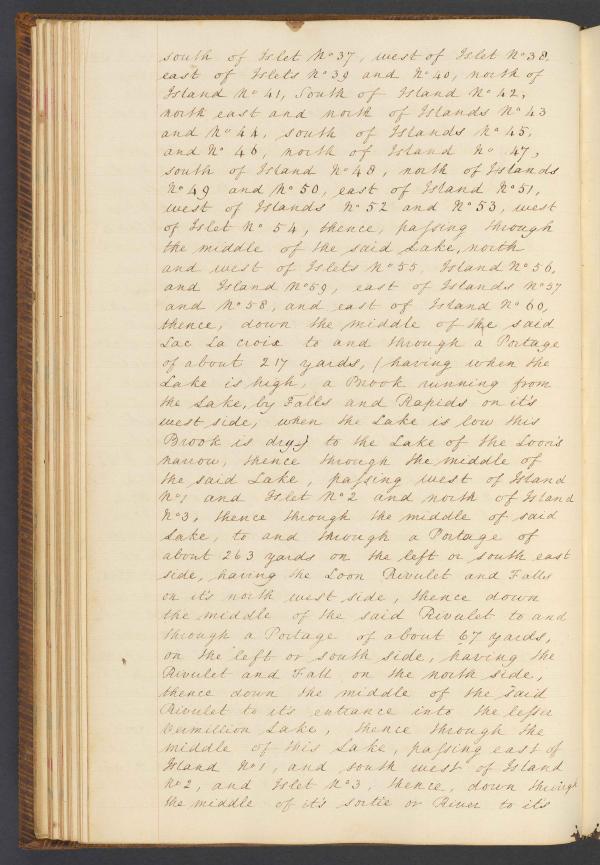 south of Islet No 37, west of Islet No 38,
east of Islets No 39 and No 40, north of
Island No 41, South of Island No 42,
north east and north of Islands No 43
and No 44, south of Islands No 45,
and No 46, north of Island No 47,
south of Island No 48, north of Islands
No 49 and No 50, east of Island No 51,
west of Islands No 52 and No 53, west
of Islet No 54, thence, paſsing through
the middle of the said Lake, north
and west of Islets No 55, Island No 56,
and Island No 59, east of Islands No 57
and No 58, and east of Island No 60,
thence, down the middle of the said
Lac La croix to and through a Portage
of about 217 yards, (having when the
Lake is high, a Brook running from
the Lake, by Falls and Rapids on it's
west side, when the Lake is low this
Brook is dry) to the Lake of the Loon's
narrow, thence through the middle of
the said Lake, paſsing west of Island
No 1 and Islet No 2 and north of Island
No 3, thence through the middle of said
Lake, to and through a Portage of
about 263 yards on the left or south east
side, having the Loon Rivulet and Falls
on it's north west side, thence down
the middle of the said Rivulet to and
through a Portage of about 67 yards,
on the left or south side, having the
Rivulet and Fall on the north side,
thence down the middle of the said
Rivulet to it's entrance into the leſser
Vermillion Lake, thence through the
middle of this Lake, paſsing east of
Island No 1, and south west of Island
No 2, and Islet No 3, thence, down through
the middle of it's sortie or River to it's